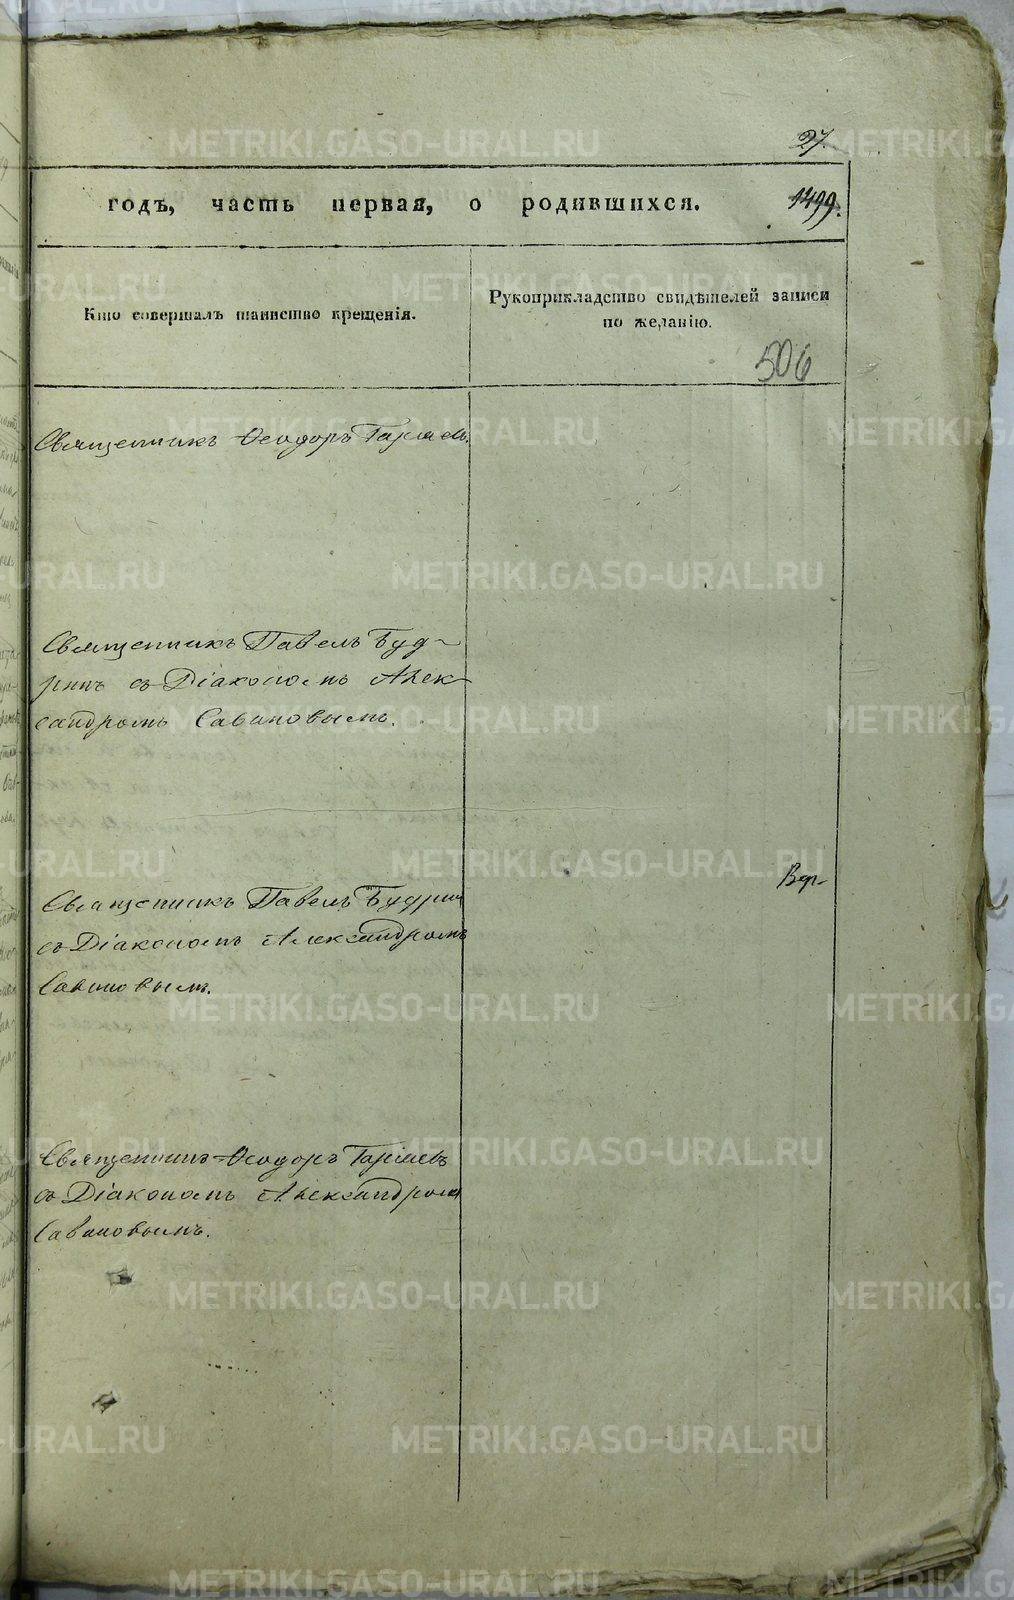 27
годъ, часть первая, о родившихся. 1499.
Кто совершалъ таинство крещенія.
Рукоприкладство свидѣтелей записи
по желанію.
506
Священникъ Ѳеодоръ Гаряевъ.
Священникъ Павелъ Буд-
ринъ съ Діакономъ Алек-
сандромъ Савиновымъ.
Священникъ Павелъ Будринъ
съ Діакономъ Александромъ
Савиновымъ.
Вѣр-
Священникъ Ѳеодоръ Гаряевъ
съ Діакономъ Александромъ
Савиновымъ.
METRIKI.GASO-URAL.RU